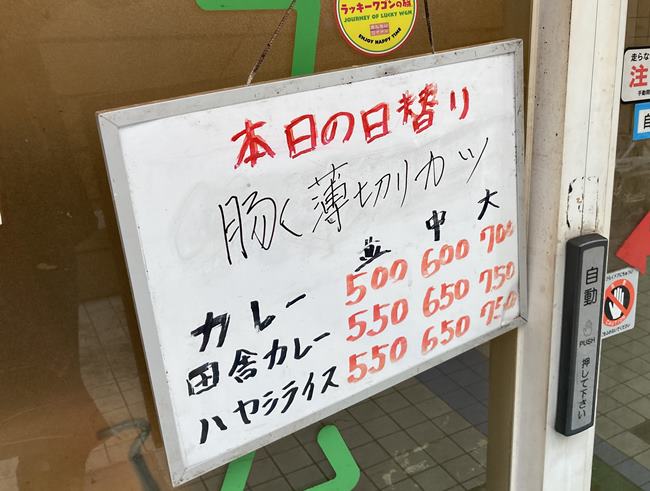 ラッキーワゴンの旅
JOURNEY OF LUCKY WGN
ENJOY HAPPY TIME
本日の日替り
豚く薄切りカツ
並 中 大
カレー 500 600 700
田舎カレー 550 650 750
ハヤシライス 550 650 750
走らな
注
自
自動
PUSH
押して下さい